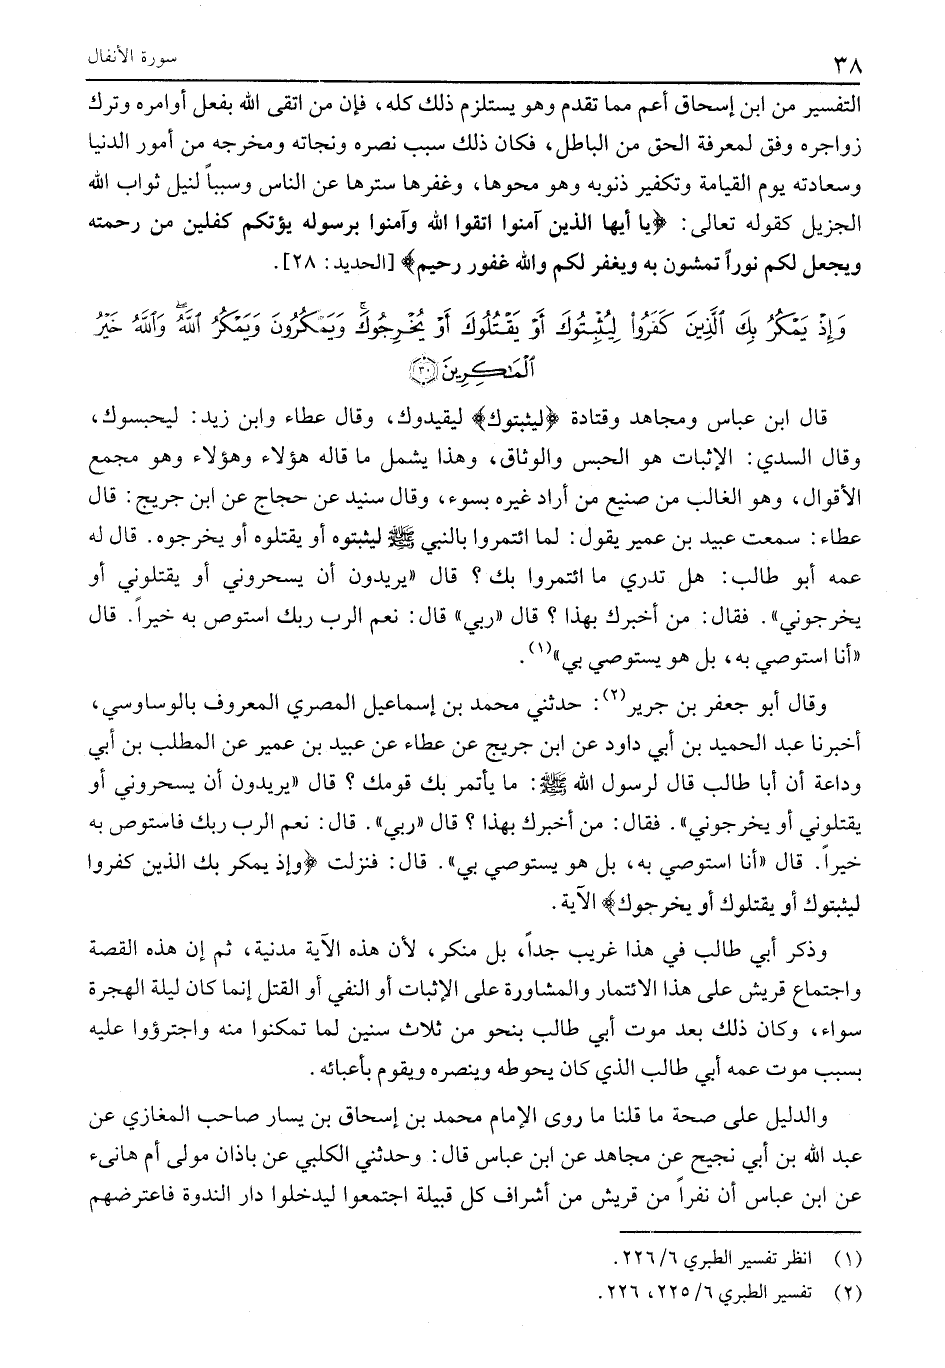 ٣٨
سورة الأنفال
التفسير من ابن إسحاق أعم مما تقدم وهو يستلزم ذلك كله، فإن من اتقى الله بفعل أوامره وترك
زواجره وفق لمعرفة الحق من الباطل، فكان ذلك سبب نصره ونجاته ومخرجه من أمور الدنيا
وسعادته يوم القيامة وتكفير ذنوبه وهو محوها، وغفرها سترها عن الناس وسبباً لنيل ثواب الله
الجزيل كقوله تعالى: ﴿يا أيها الذين آمنوا اتقوا الله وآمنوا برسوله يؤتكم كفلين من رحمته
ويجعل لكم نوراً تمشون به ويغفر لكم والله غفور رحيم﴾ [الحديد: ٢٨].
وَإِذْ يَمْكُرُ بِكَ ٱلَّذِينَ كَفَرُوا۟ لِيُثْبِتُوكَ أَوْ يَقْتُلُوكَ أَوْ يُخْرِجُوكَ ۚ وَيَمْكُرُونَ وَيَمْكُرُ ٱللَّهُ ۖ وَٱللَّهُ خَيْرُ
ٱلْمَـٰكِرِينَ ﴿٣٠﴾
قال ابن عباس ومجاهد وقتادة ﴿ليثبتوك﴾ ليقيدوك، وقال عطاء وابن زيد: ليحبسوك،
وقال السدي: الإثبات هو الحبس والوثاق، وهذا يشمل ما قاله هؤلاء وهؤلاء وهو مجمع
الأقوال، وهو الغالب من صنيع من أراد غيره بسوء، وقال سنيد عن حجاج عن ابن جريج: قال
عطاء: سمعت عبيد بن عمير يقول: لما ائتمروا بالنبي ﷺ ليثبتوه أو يقتلوه أو يخرجوه. قال له
عمه أبو طالب: هل تدري ما ائتمروا بك؟ قال «يريدون أن يسحروني أو يقتلوني أو
يخرجوني». فقال: من أخبرك بهذا؟ قال «ربي» قال: نعم الرب ربك استوص به خيراً. قال
«أنا استوصي به، بل هو يستوصي بي»(١).
وقال أبو جعفر بن جرير(٢): حدثني محمد بن إسماعيل المصري المعروف بالوساوسي،
أخبرنا عبد الحميد بن أبي داود عن ابن جريج عن عطاء عن عبيد بن عمير عن المطلب بن أبي
وداعة أن أبا طالب قال لرسول الله ﷺ: ما يأتمر بك قومك؟ قال «يريدون أن يسحروني أو
يقتلوني أو يخرجوني». فقال: من أخبرك بهذا؟ قال «ربي». قال: نعم الرب ربك فاستوص به
خيراً. قال «أنا استوصي به، بل هو يستوصي بي». قال: فنزلت ﴿وإذ يمكر بك الذين كفروا
ليثبتوك أو يقتلوك أو يخرجوك﴾ الآية.
وذكر أبي طالب في هذا غريب جداً، بل منكر، لأن هذه الآية مدنية، ثم إن هذه القصة
واجتماع قريش على هذا الائتمار والمشاورة على الإثبات أو النفي أو القتل إنما كان ليلة الهجرة
سواء، وكان ذلك بعد موت أبي طالب بنحو من ثلاث سنين لما تمكنوا منه واجترؤوا عليه
بسبب موت عمه أبي طالب الذي كان يحوطه وينصره ويقوم بأعبائه.
والدليل على صحة ما قلنا ما روى الإمام محمد بن إسحاق بن يسار صاحب المغازي عن
عبد الله بن أبي نجيح عن مجاهد عن ابن عباس قال: وحدثني الكلبي عن باذان مولى أم هانىء
عن ابن عباس أن نفراً من قريش من أشراف كل قبيلة اجتمعوا ليدخلوا دار الندوة فاعترضهم
(١) انظر تفسير الطبري ٢٢٦/٦.
(٢) تفسير الطبري ٢٢٥/٦، ٢٢٦.